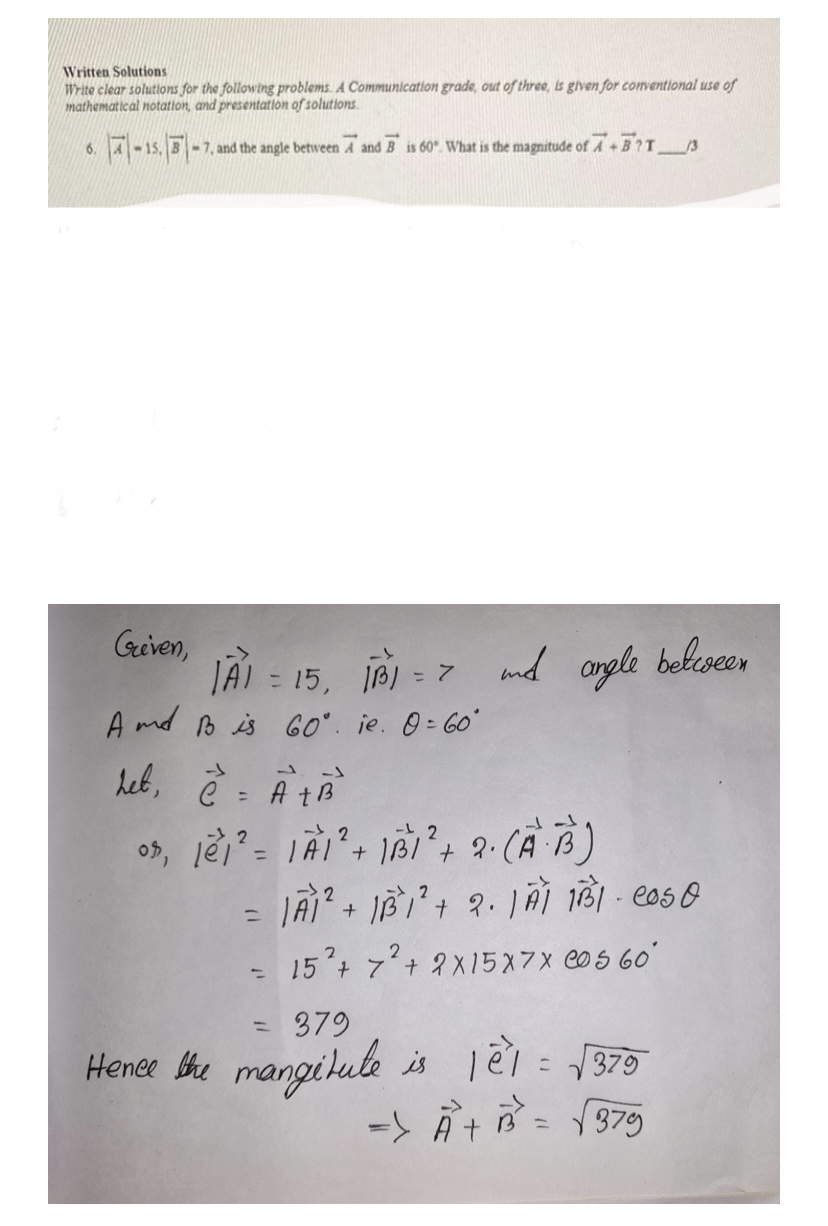 Written Solutions
Write clear solutions for the following problems. A Communication grade, out of three, is given for conventional use of
mathematical notation, and presentation of solutions.
6. |A⃗| = 15, |B⃗| = 7, and the angle between A⃗ and B⃗ is 60°. What is the magnitude of A⃗ + B⃗ ? T ___/3
Given,
|A⃗| = 15, |B⃗| = 7 and angle between
A and B is 60°. ie. θ = 60°
Let, C⃗ = A⃗ + B⃗
or, |C⃗|² = |A⃗|² + |B⃗|² + 2·(A⃗·B⃗)
= |A⃗|² + |B⃗|² + 2·|A⃗| |B⃗|·cosθ
= 15² + 7² + 2×15×7× cos 60°
= 379
Hence the mangitute is |C⃗| = √379
=> A⃗ + B⃗ = √379